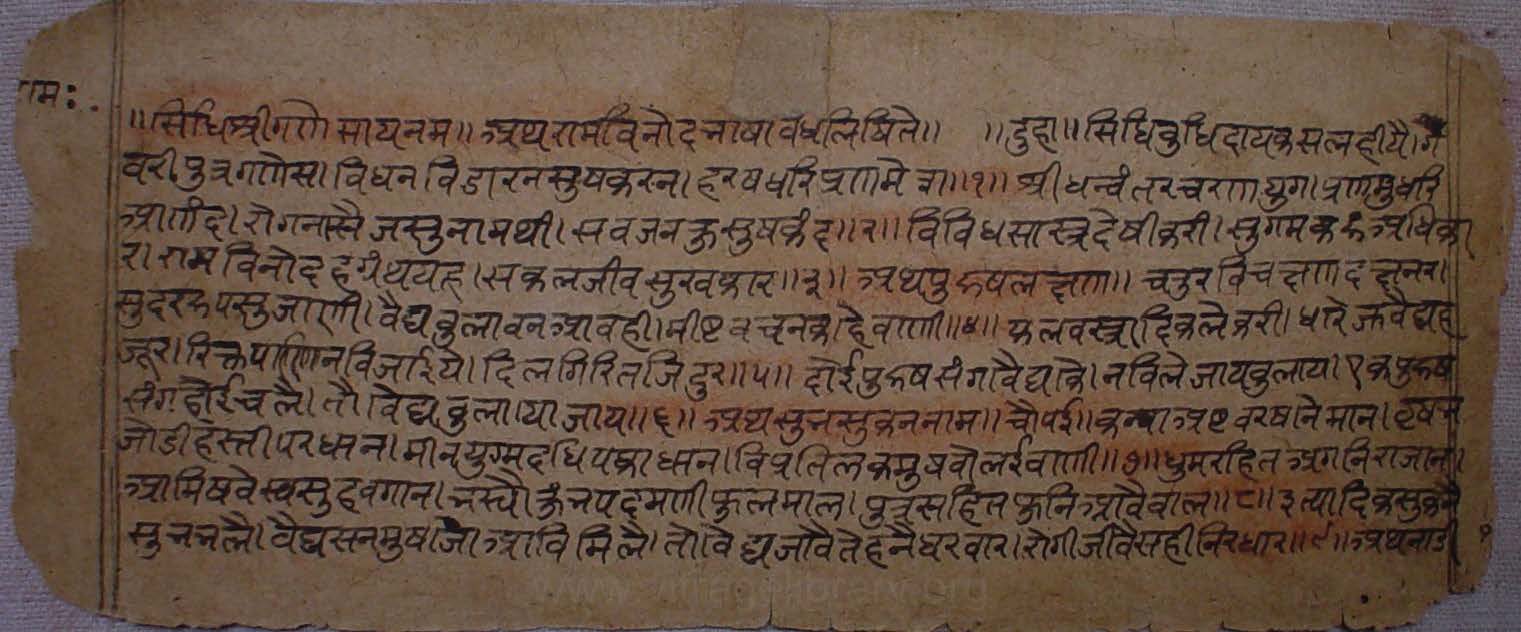 ामः
॥ सिधिश्रीगणेसायनम ॥ अथ रामविनोद भाषा वंध लिषिते ॥ ॥ दुहा ॥ सिधिबुधिदायक सलहीयै । ग
वरीपुत्र गणेस । विघन विडारन सुषकरन । हरष धरि प्रणमे ॥ १ ॥ श्रीधन्वंतर चरणयुग । प्रणमु धरि
आणंद । रोग नासै जसु नामथी । सव जन कु सुषकंद ॥ २ ॥ विविध सास्त्र देषी करी । सुगम करु अधिका
र । राम विनोदह ग्रंथ यह । सकल जीव सुखकार ॥ ३ ॥ अथ पुरुष लक्षण ॥ चतुर विचक्षण दक्ष नर ।
सुदर रूप सुजाणी । वैद्य वुलावन आवही । मीष्ट वचन कहै वाणी ॥ ४ ॥ फल वस्त्रादिक लै करी । धारे वैद्य ह
जूर । रिक्त पाणि नवि जाईये । दिलगिरि तजि दुर ॥ ५ ॥ दोई पुरुष संग वैद्य कै । नविले जाय वुलाय । एक पुरुष
संग होई चलै । तौ वैद्य वुलाया जाय ॥ ६ ॥ अथ सुभ सुकन नाम ॥ चौपई ॥ कन्या अष्ट वरषाने मान । वृषभ
जोडी हस्ती पर ध्वान । मीन युग्म दधि ध्वान । विप्र तिलक मुष वोलई वाणी ॥ ७ ॥ धुम रहित अगनि राजान ।
आमिष वैस्या सुहव गान । कुंभ पदमणी फुलमाल । पुत्र सहित फुनि आवै वाल ॥ ८ ॥ इत्यादिक सुकन
सुभ भलै । वैद्य सनमुष जो आवि मिलै । तौ वैद्य जावै तेहनै घरवार । रोगी जीवै सही निरधार ॥ ९ ॥ अथ नाडी
१